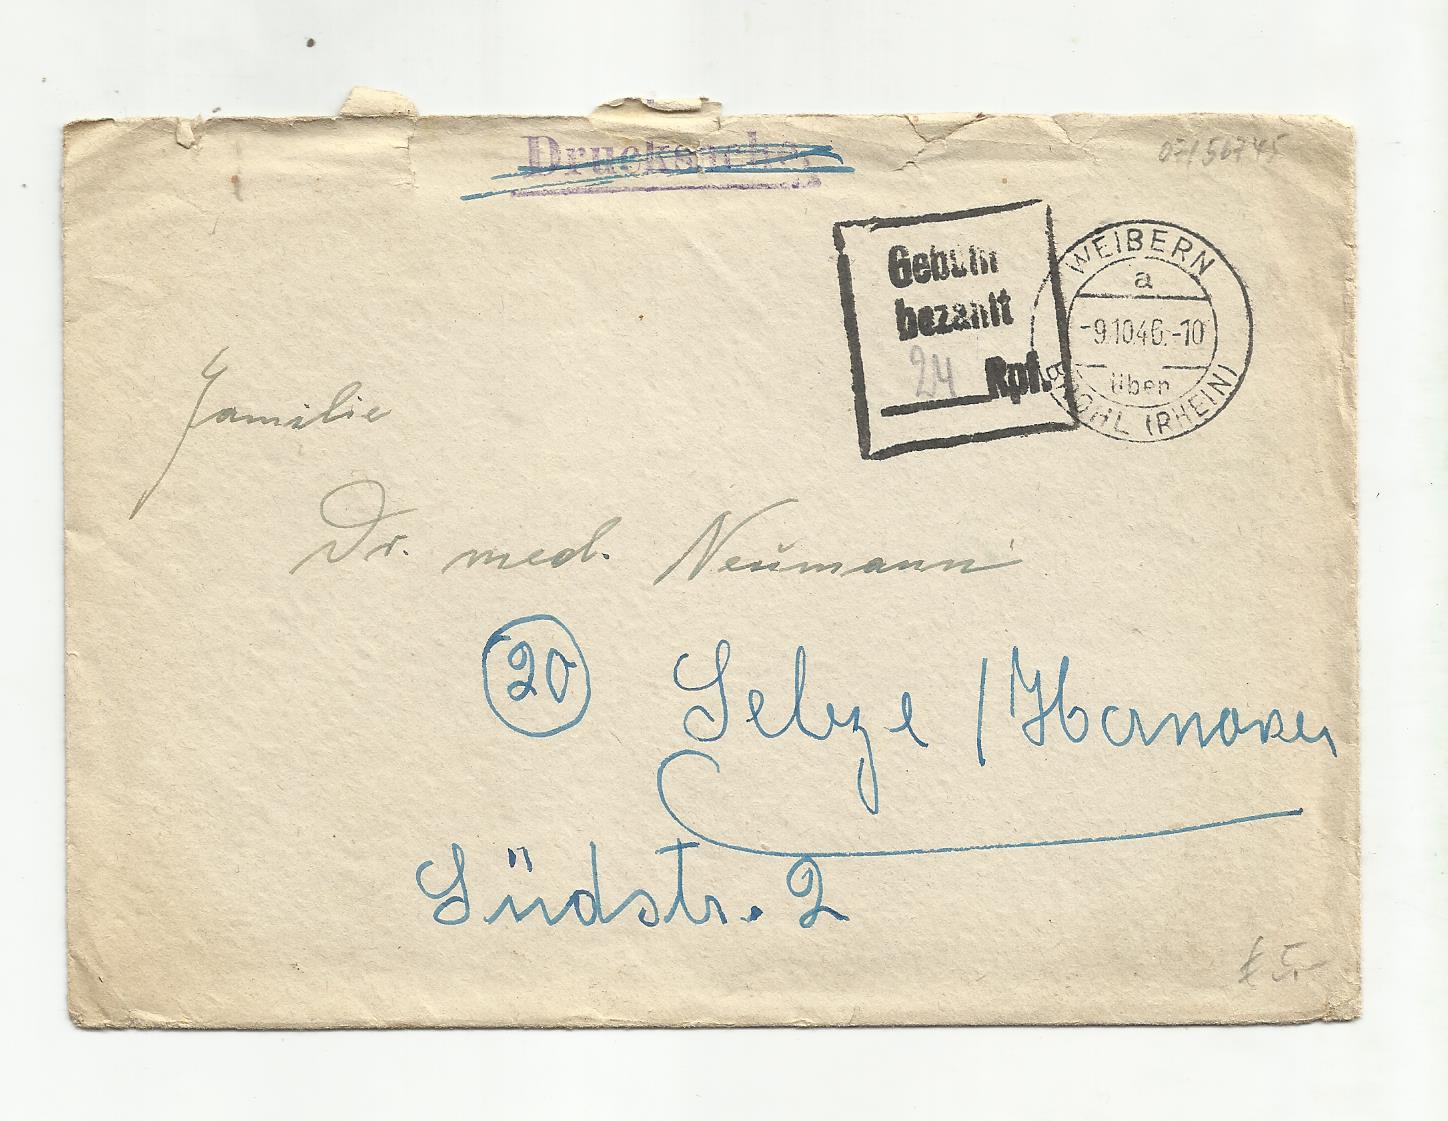 Drucksache
07156745
Gebühr
bezahlt
24 Rpf.
WEIBERN
a
-9.10.46.-10
über
BROHL (RHEIN)
Familie
Dr. med. Neumann
20 Selze / Hannover
Südstr. 2
€ 5.-